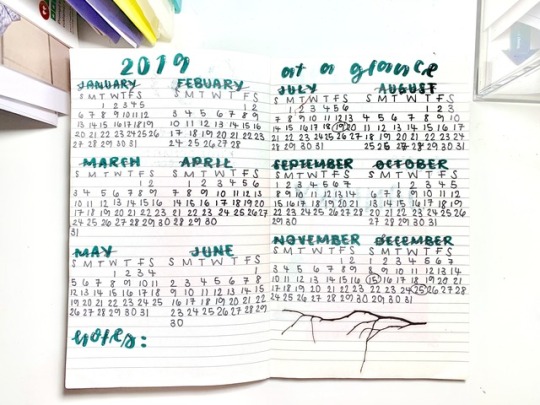 2019
JANUARY
S M T W T F S
1 2 3 4 5
6 7 8 9 10 11 12
13 14 15 16 17 18 19
20 21 22 23 24 25 26
27 28 29 30 31
FEBUARY
S M T W T F S
1 2
3 4 5 6 7 8 9
10 11 12 13 14 15 16
17 18 19 20 21 22 23
24 25 26 27 28
MARCH
S M T W T F S
1 2
3 4 5 6 7 8 9
10 11 12 13 14 15 16
17 18 19 20 21 22 23
24 25 26 27 28 29 30
31
APRIL
S M T W T F S
1 2 3 4 5 6
7 8 9 10 11 12 13
14 15 16 17 18 19 20
21 22 23 24 25 26 27
28 29 30
MAY
S M T W T F S
1 2 3 4
5 6 7 8 9 10 11
12 13 14 15 16 17 18
19 20 21 22 23 24 25
26 27 28 29 30 31
JUNE
S M T W T F S
1
2 3 4 5 6 7 8
9 10 11 12 13 14 15
16 17 18 19 20 21 22
23 24 25 26 27 28 29
30
notes:
at a glance
JULY
S M T W T F S
1 2 3 4 5 6
7 8 9 10 11 12 13
14 15 16 17 18 19 20
21 22 23 24 25 26 27
28 29 30 31
AUGUST
S M T W T F S
1 2 3
4 5 6 7 8 9 10
11 12 13 14 15 16 17
18 19 20 21 22 23 24
25 26 27 28 29 30 31
SEPTEMBER
S M T W T F S
1 2 3 4 5 6 7
8 9 10 11 12 13 14
15 16 17 18 19 20 21
22 23 24 25 26 27 28
29 30
OCTOBER
S M T W T F S
1 2 3 4 5
6 7 8 9 10 11 12
13 14 15 16 17 18 19
20 21 22 23 24 25 26
27 28 29 30 31
NOVEMBER
S M T W T F S
1 2
3 4 5 6 7 8 9
10 11 12 13 14 15 16
17 18 19 20 21 22 23
24 25 26 27 28 29 30
DECEMBER
S M T W T F S
1 2 3 4 5 6 7
8 9 10 11 12 13 14
15 16 17 18 19 20 21
22 23 24 25 26 27 28
29 30 31